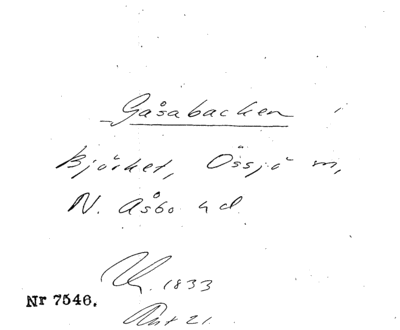 Gåsabacken
Björket, Össjö m,
N. Åsbo hd
1833
Nr 7546.
21